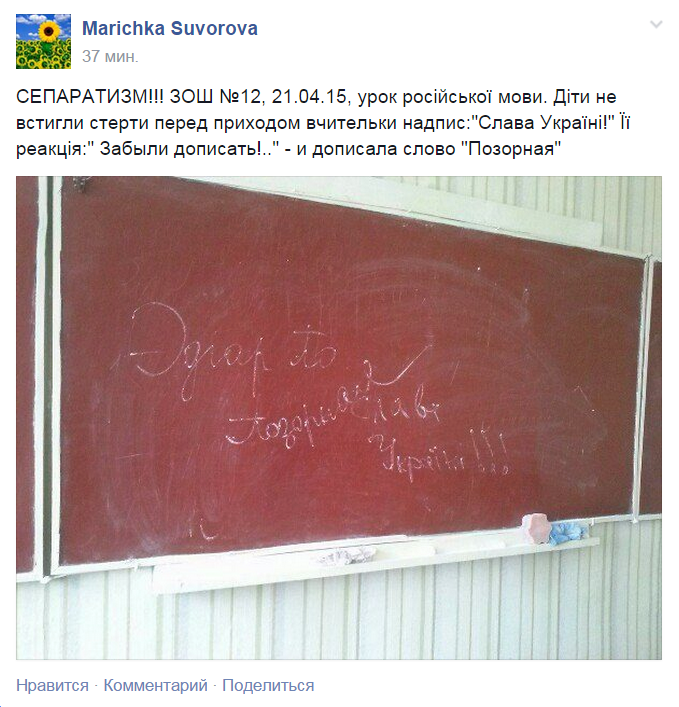 Marichka Suvorova
37 мин.
СЕПАРАТИЗМ!!! ЗОШ №12, 21.04.15, урок російської мови. Діти не
встигли стерти перед приходом вчительки надпис:"Слава Україні!" Її
реакція:" Забыли дописать!.." - и дописала слово "Позорная"
Эдгар По
Позорная Слава
Україні!!!
Нравится · Комментарий · Поделиться